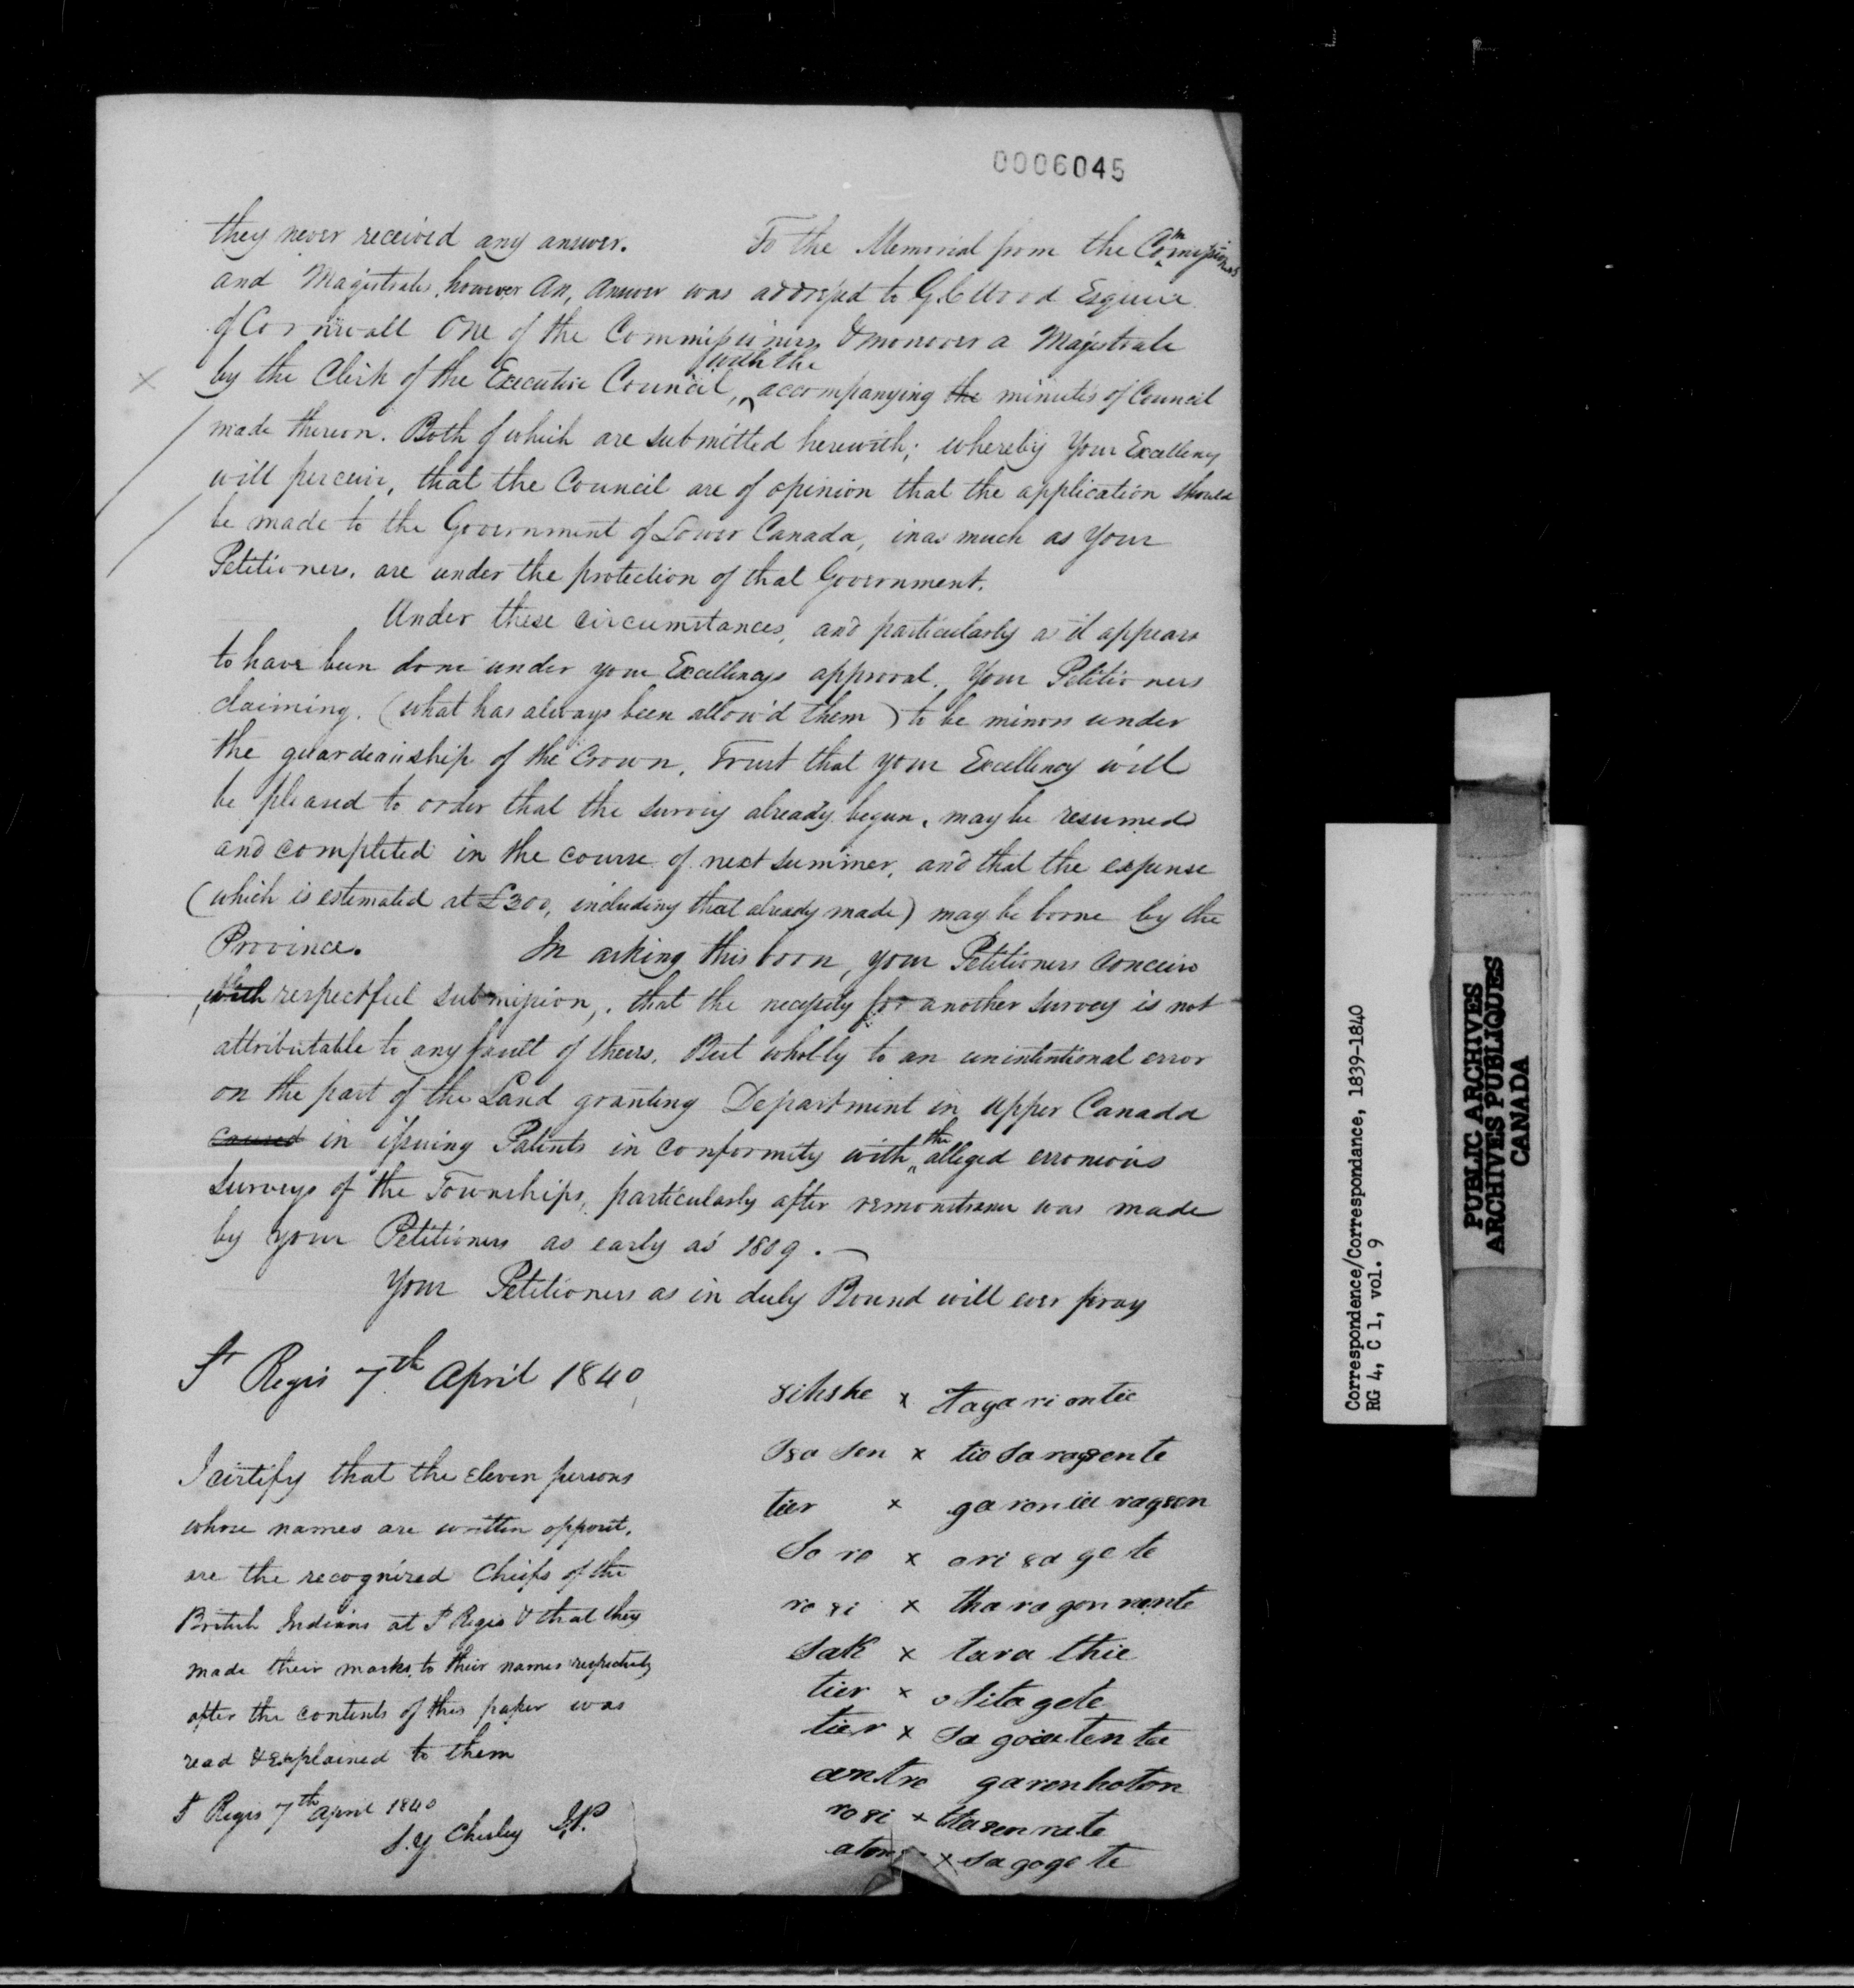 0006045
they never received any answer. To the Memorial from the Commissioners
and Magistrates, however An, Answer was addressed to G. C Wood Esquire
of Cornwall One of the Commissioners & moreover a Magistrate
by the Clerk of the Executive Council, with the accompanying the minutes of Council
made thereon. Both of which are submitted herewith; whereby Your Excellency
will perceive, that the Council are of opinion that the application should
be made to the Government of Lower Canada, inas much as Your
Petitioners, are under the protection of that Government.
Under these circumstances, and particularly as it appears
to have been done under your Excellencys approval. Your Petitioners
claiming, (what has always been allow'd them) to be minors under
the guardeanship of the Crown, Trust that your Excellency will
be pleased to order that the survey already begun, may be resumed
and completed in the course of next summer, and that the expense
(which is estimated at £300, including that already made) may be borne by the
Province. In asking this boon, your Petitioners conceive
with respectful submission, that the necessity for another survey is not
attributable to any fault of theirs, But wholly to an unintentional error
on the part of the Land granting Department in Upper Canada
caused in issuing Patents in conformity with the alleged erroneous
Surveys of the Townships, particularly after remonstrance was made
by your Petitioners as early as 1809.
Your Petitioners as in duty Bound will ever pray
St Regis 7th April 1840
I certify that the eleven persons
whose names are written opposit,
are the recognized Chiefs of the
British Indians at St Regis & that they
made their marks to their names respectively
after the contents of this paper was
read & explained to them
St Regis 7th April 1840
S. Y. Chesley J.P.
8ishe x Tagariontie
Sso Sen x tiosarag8ente
tier x garoniaragson
So ro x ori8agete
ro8i x tharagonnente
Sak x tara thie
tier x ositagete
tier x sagoiatentae
antre garonhoton
ro8i x ttasenrate
x sagogete
Correspondence/Correspondance, 1839-1840
RG 4, C 1, vol. 9
PUBLIC ARCHIVES
ARCHIVES PUBLIQUES
CANADA